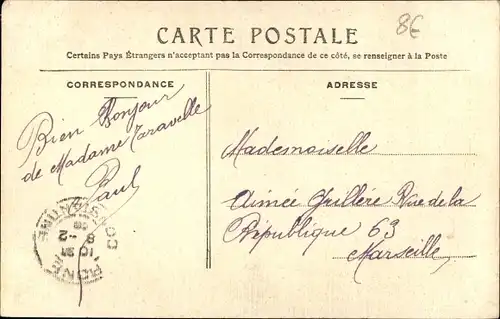 8€
CARTE POSTALE
Certains Pays Étrangers n'acceptant pas la Correspondance de ce côté, se renseigner à la Poste
CORRESPONDANCE
ADRESSE
Bien Bonjour
de Madame Taravelle
Paul
Mademoiselle
Aimée Grillère Rue de la
République 63
Marseille